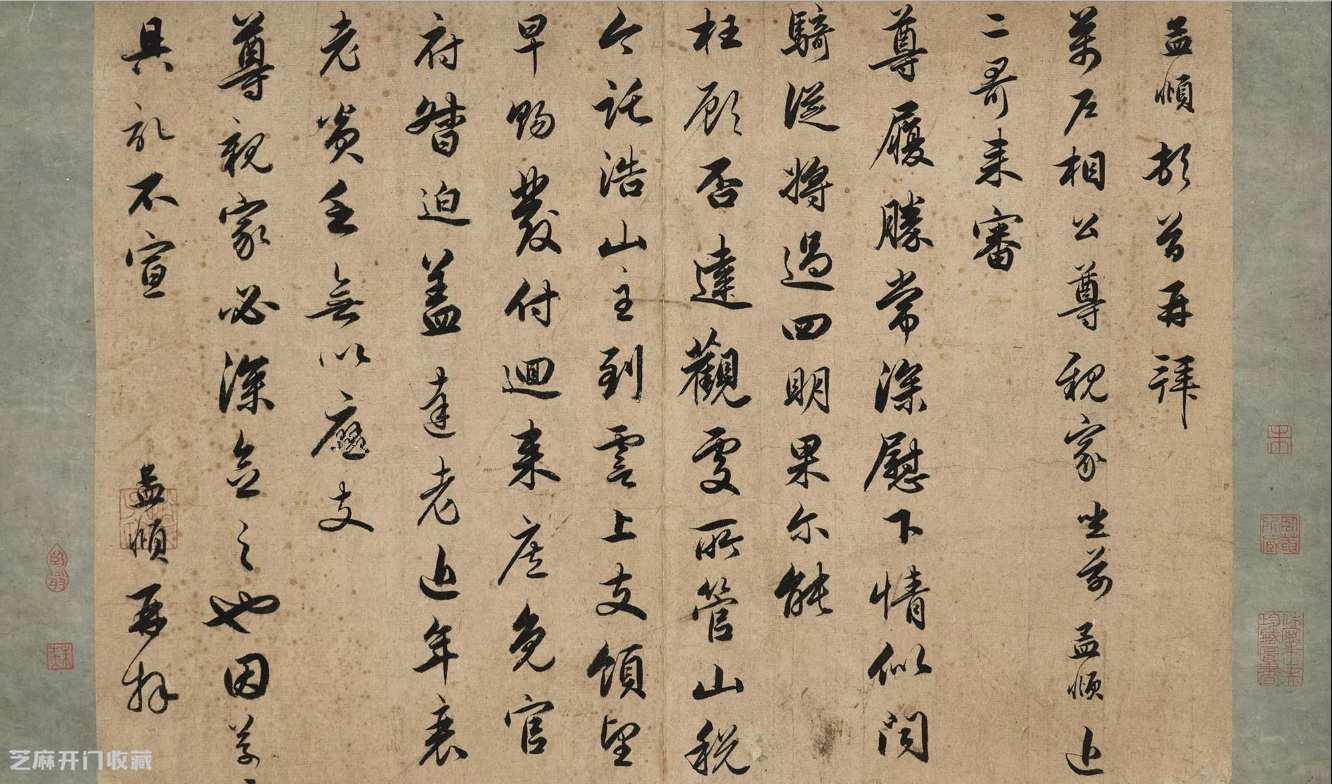 孟頫頓首再拜
萬戶相公尊親家坐前孟頫近
二哥来審
尊履勝常深慰下情似聞
騎從將過四明果尔能
枉顧否達觀處所管山稅
今託浩山主到霅上支領望
早賜發付迴来庶免官
府督迫盖達老近年衰
老資全無以應支
尊親家必深念之也因
具不宣 孟頫再拜
芝麻开门收藏